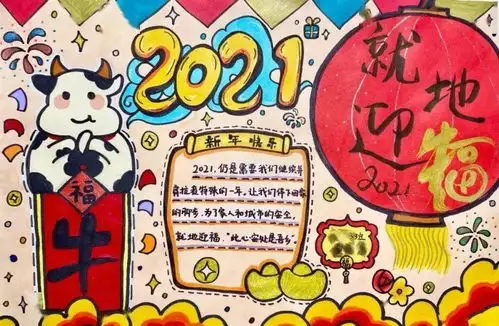 2021
新年快乐
2021,仍是需要我们继续并
肩抗疫特殊的一年。让我们停下回家
的脚步,为了家人和城市的安全,
就地迎福,"此心安处是吾乡"
就地
迎福
2021
福
牛
班
福